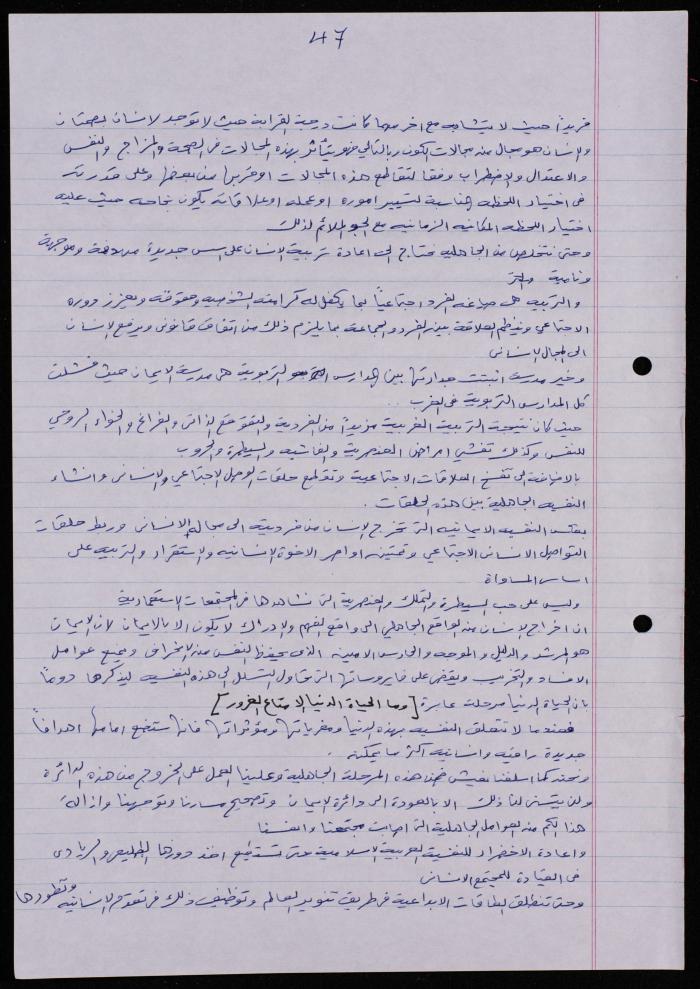 47
فريداً حيث لا يتشابه مع آخر مهما كانت درجة القرابة حيث لا توجد لإنسان بصمتان
والإنسان هو مجال من مجالات الكون وبالتالي فهو يتأثر بهذه المجالات في الصحة والمزاج والنفس
والاعتدال والاضطراب وفقا لتقاطع هذه المجالات او قربها من بعضها وعلى قدرته
في اختيار اللحظه المناسبة لتسيير اموره او عمله او علاقاته يكون نجاحه حيث عليه
اختيار اللحظه المكانيه الزمانيه مع الجو الملائم لذلك
وحتى نتخلص من الجاهليه نحتاج الى اعادة تربية الإنسان على اسس جديدة وموجهة
ونامية
والتربيه هي صياغه الفرد اجتماعياً بما يكفل له كرامته الشخصيه وحقوقه ويعزز دوره
الاجتماعي وينظم العلاقة بين الفرد والجماعة بما يلزم ذلك من اتفاق قانوني ويرفع الإنسان
الى المجال الإنساني
وخير مدرسة اثبتت جدارتها بين المدارس التربوية هي مدرسة الايمان حيث فشلت
كل المدارس التربوية في الغرب ..
حيث كان نتيجة التربية الغربية مزيداً من الفردية والتقوقع الذاتي والفراغ والخواء الروحي
للنفس وكذلك تفشي امراض العنصرية والفاشيه والسيطرة والحروب
بالاضافة الى تفسخ العلاقات الاجتماعية وتقطع حلقات الوصل الاجتماعي والإنساني وانشاء
النفسيه الجاهلية بين هذه الحلقات .
بعكس النفسيه الايمانيه التي تخرج الإنسان من فرديته الى مجاله الإنساني وربط حلقات
التواصل الانساني الاجتماعي وتمتين اواصر الاخوة الإنسانيه والاستقرار والتربيه على
اساس المساواة
وليس على حب السيطرة والتملك والعنصرية التي نشاهدها في المجتمعات الاستعمارية
ان اخراج الإنسان من الواقع الجاهلي الى واقع الفهم والإدراك لا يكون الا بالايمان لان الايمان
هو المرشد والدليل والموجه والحارس الامين الذي يحفظ النفس من الانحراف ويمنع عوامل
الافساد والتخريب ويقضي على فايروساتها التي تحاول التسلل الى هذه النفسيه ليذكرها دوماً
بان الحياة الدنيا مرحلة عابرة [وما الحياة الدنيا الا متاع الغرور]
فعندما لا تتعلق النفسيه بهذه الدنيا ومغرياتها ومؤثراتها فانها ستضع امامها اهدافاً
جديدة راقيه وانسانيه اكثر ما يمكنه .
ونحن كما اسلفنا نعيش ضمن هذه المرحلة الجاهليه وعلينا العمل على الخروج من هذه الدائرة
ولن يتسنى لنا ذلك الا بالعودة الى دائرة الايمان وتصحيح مسارنا وتوجهنا وازالة
هذا الكم من العوامل الجاهلية التي اصابت مجتمعنا وانفسنا
واعادة الاخضرار للنفسية العربية الاسلامية حتى تستطيع اخذ دورها الطليعي والريادي
في القيادة للمجتمع الانساني
وحتى تنطلق الطاقات الابداعية في طريق تنوير العالم وتوظيف ذلك في تقدم الإنسانيه وتطورها